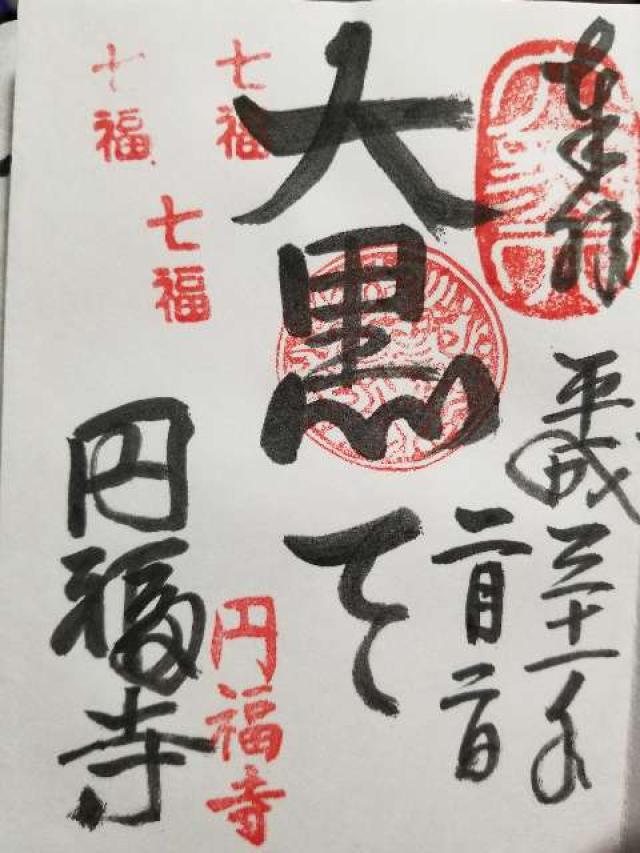 奉拝
平成三十一年
二月二日
大黒天
七福
七福
七福
円福寺
円福寺